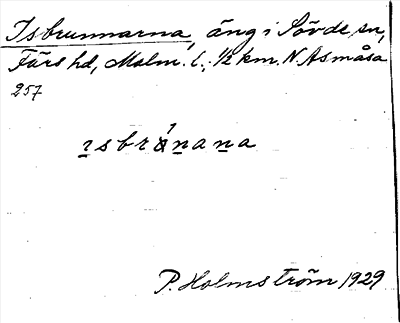 Isbrunnarna, äng i Sövde sn,
Färs hd, Malm. l., ½ km. N. Asmåsa
257
ɪsbránana
P. Holmström 1929